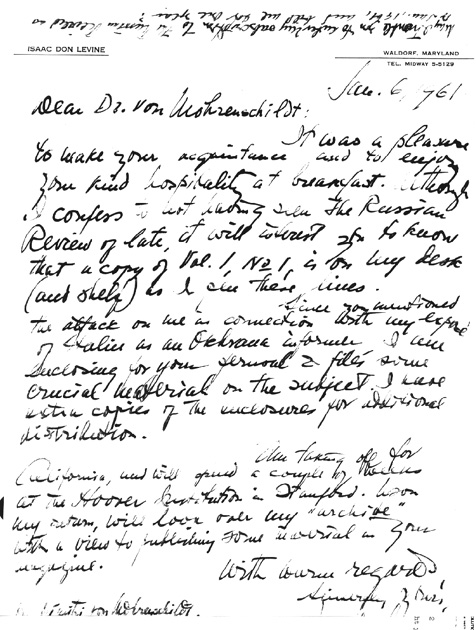 ISAAC DON LEVINE
WALDORF, MARYLAND
TEL. MIDWAY 5-5129
Jan. 6, 1961
Dear Dr. von Mohrenschildt:
It was a pleasure
to make your acquaintance and to enjoy
your kind hospitality at breakfast. Although
I confess to not having seen The Russian
Review of late, it will interest you to know
that a copy of Vol. 1, No 1, is on my desk
(and shelf) as I these lines.
Since you mentioned
the attack on me in connection with my exposé
of Stalin as an Okhrana informer I am
enclosing for your personal files some
crucial material on the subject. I have
extra copies of the enclosures for additional
distribution.
Am taking off for
California, and will spend a couple of weeks
at the Hoover Institution in Stanford. Upon
my return, will look over my "archive"
with a view to publishing some material in your
magazine.
With warm regards
Sincerely yours,
von Mohrenschildt.